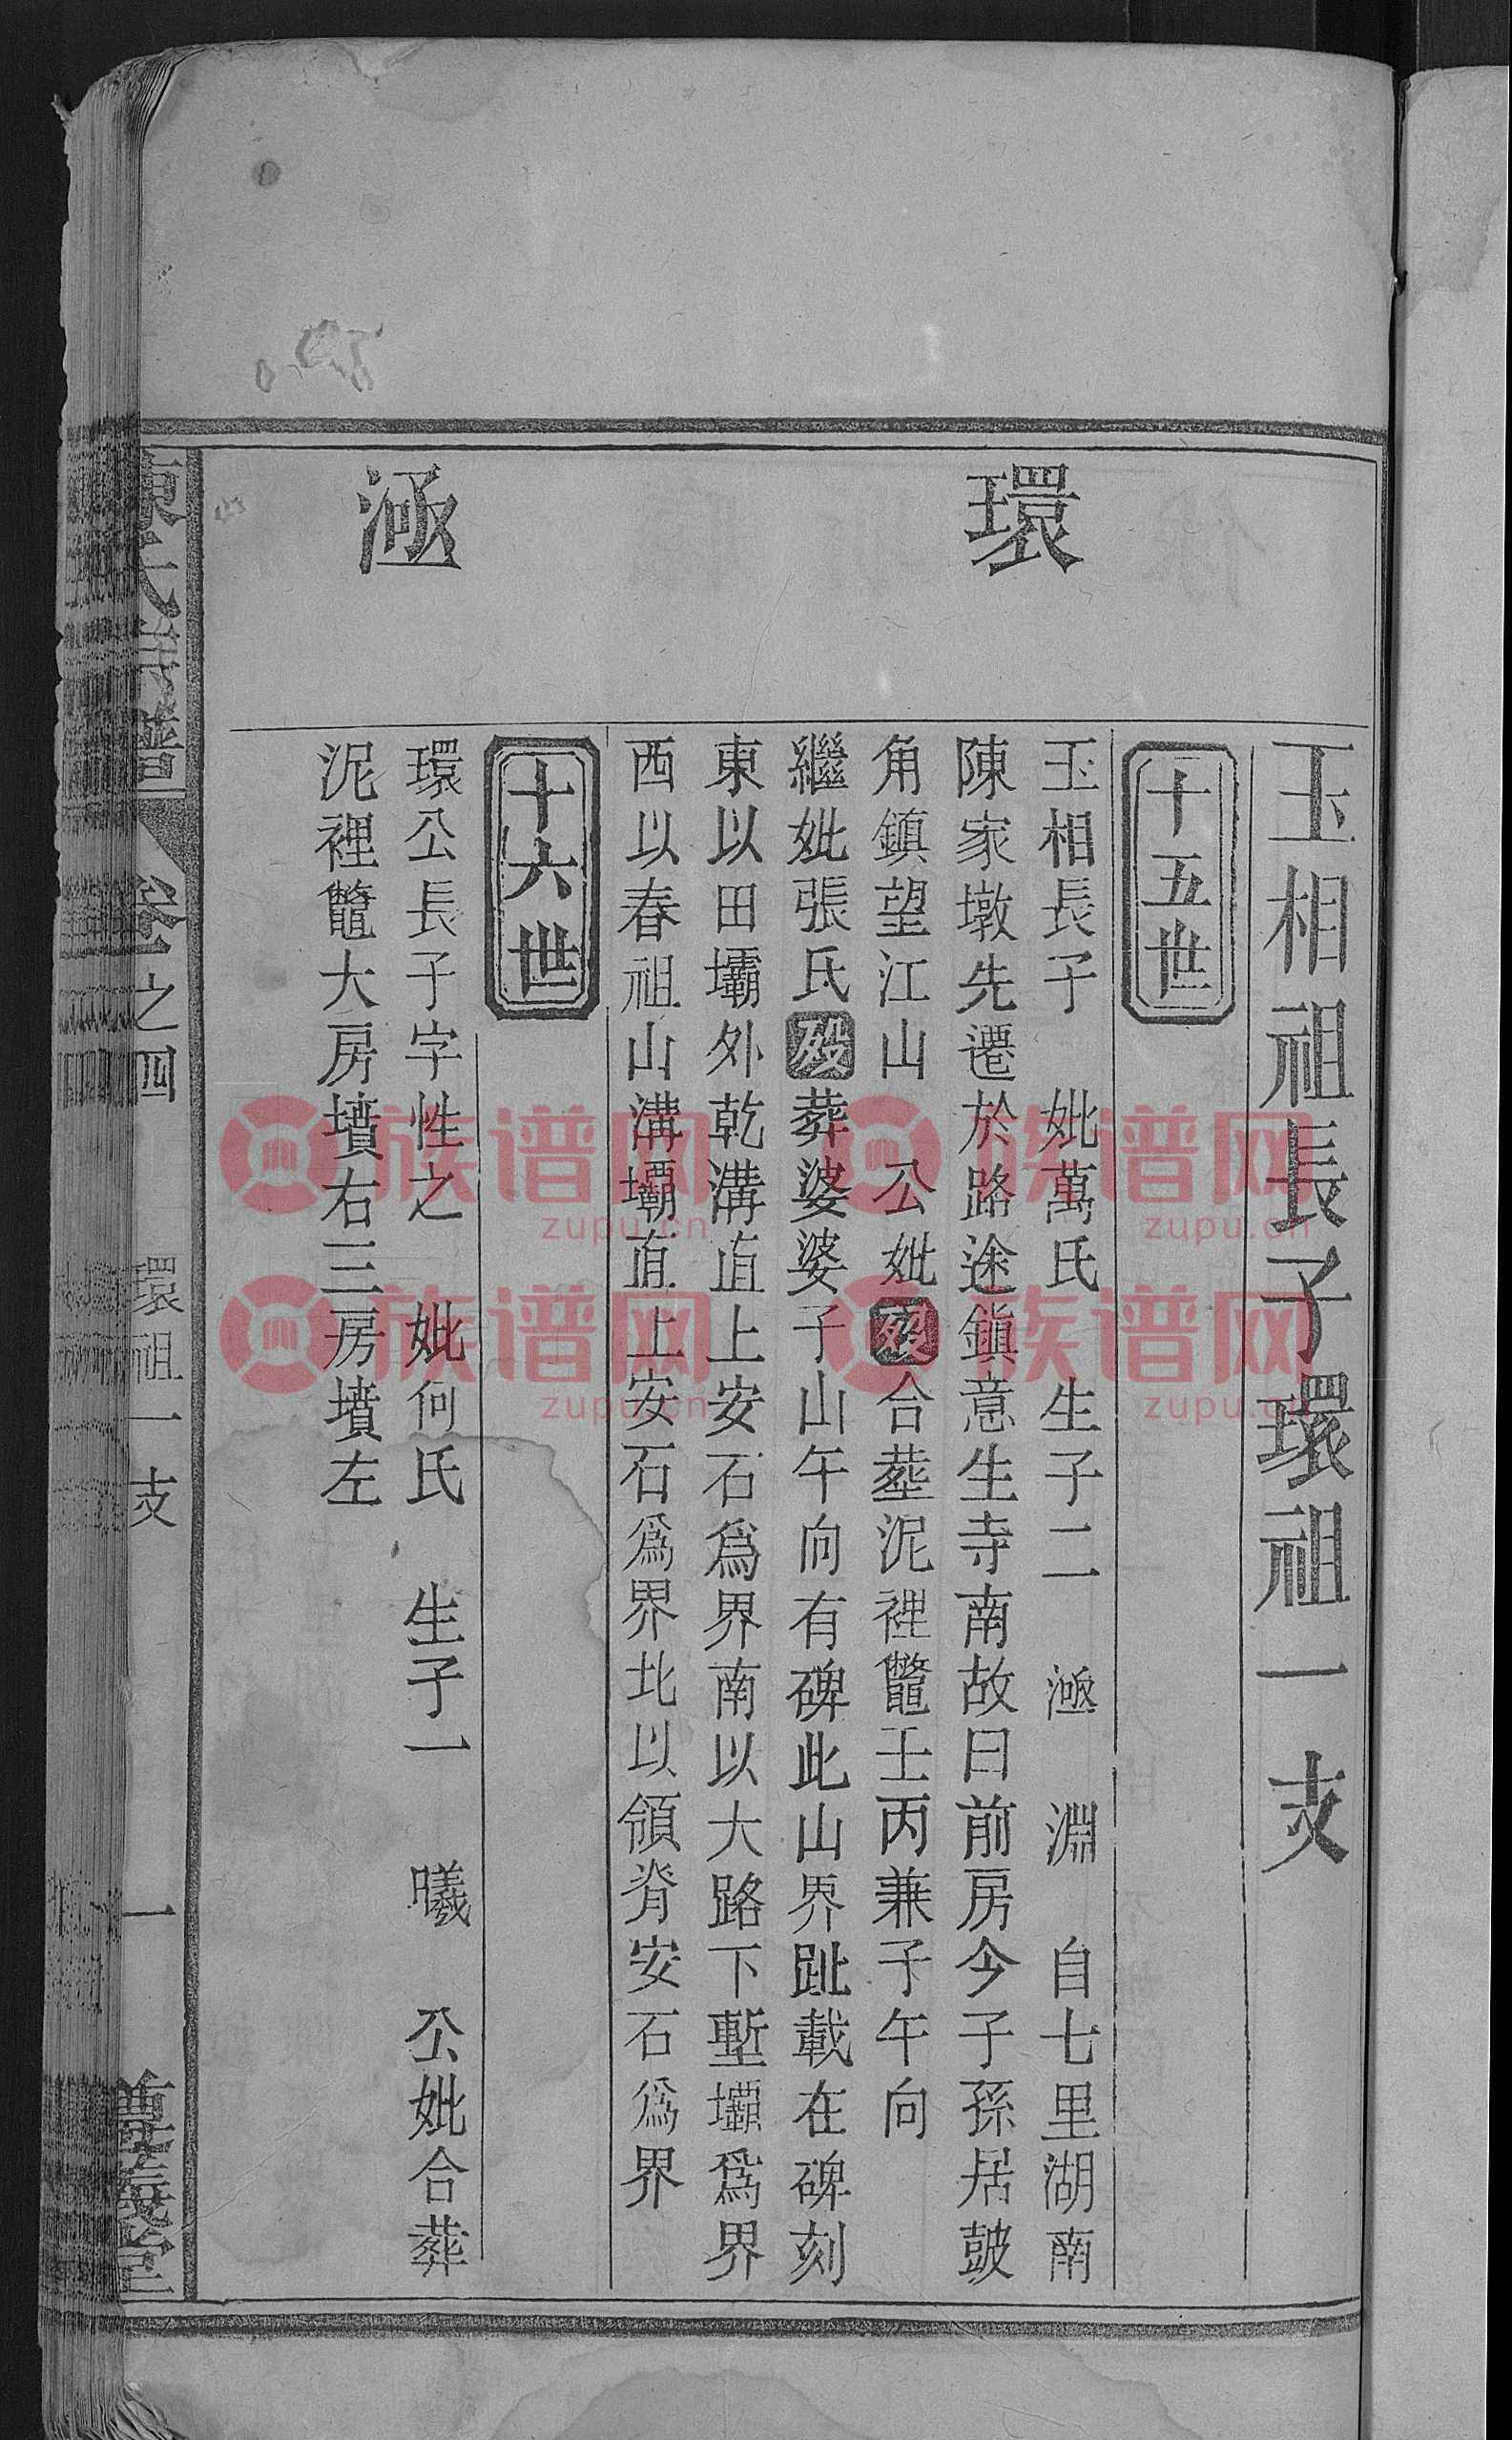 玉相祖長子環祖一支
十五世
環
玉相長子 妣萬氏 生子二 㴠 淵 自七里湖南
陳家墩先遷於路途鎮意生寺南故曰前房今子孫居皷
角鎮望江山 公妣歿合塟泥裡鼈壬丙兼子午向
繼妣張氏歿葬婆婆子山午向有碑此山界趾載在碑刻
東以田壩外乾溝直上安石爲界南以大路下塹壩爲界
西以春祖山溝壩直上安石爲界北以領脊安石爲界
十六世
㴠
環公長子字性之 妣何氏 生子一 曦 公妣合葬
泥裡鼈大房墳右三房墳左
陳氏宗譜 卷之四 環祖一支 一 尊義堂
族谱网
zupu.cn
族谱网
zupu.cn
族谱网
zupu.cn
族谱网
zupu.cn